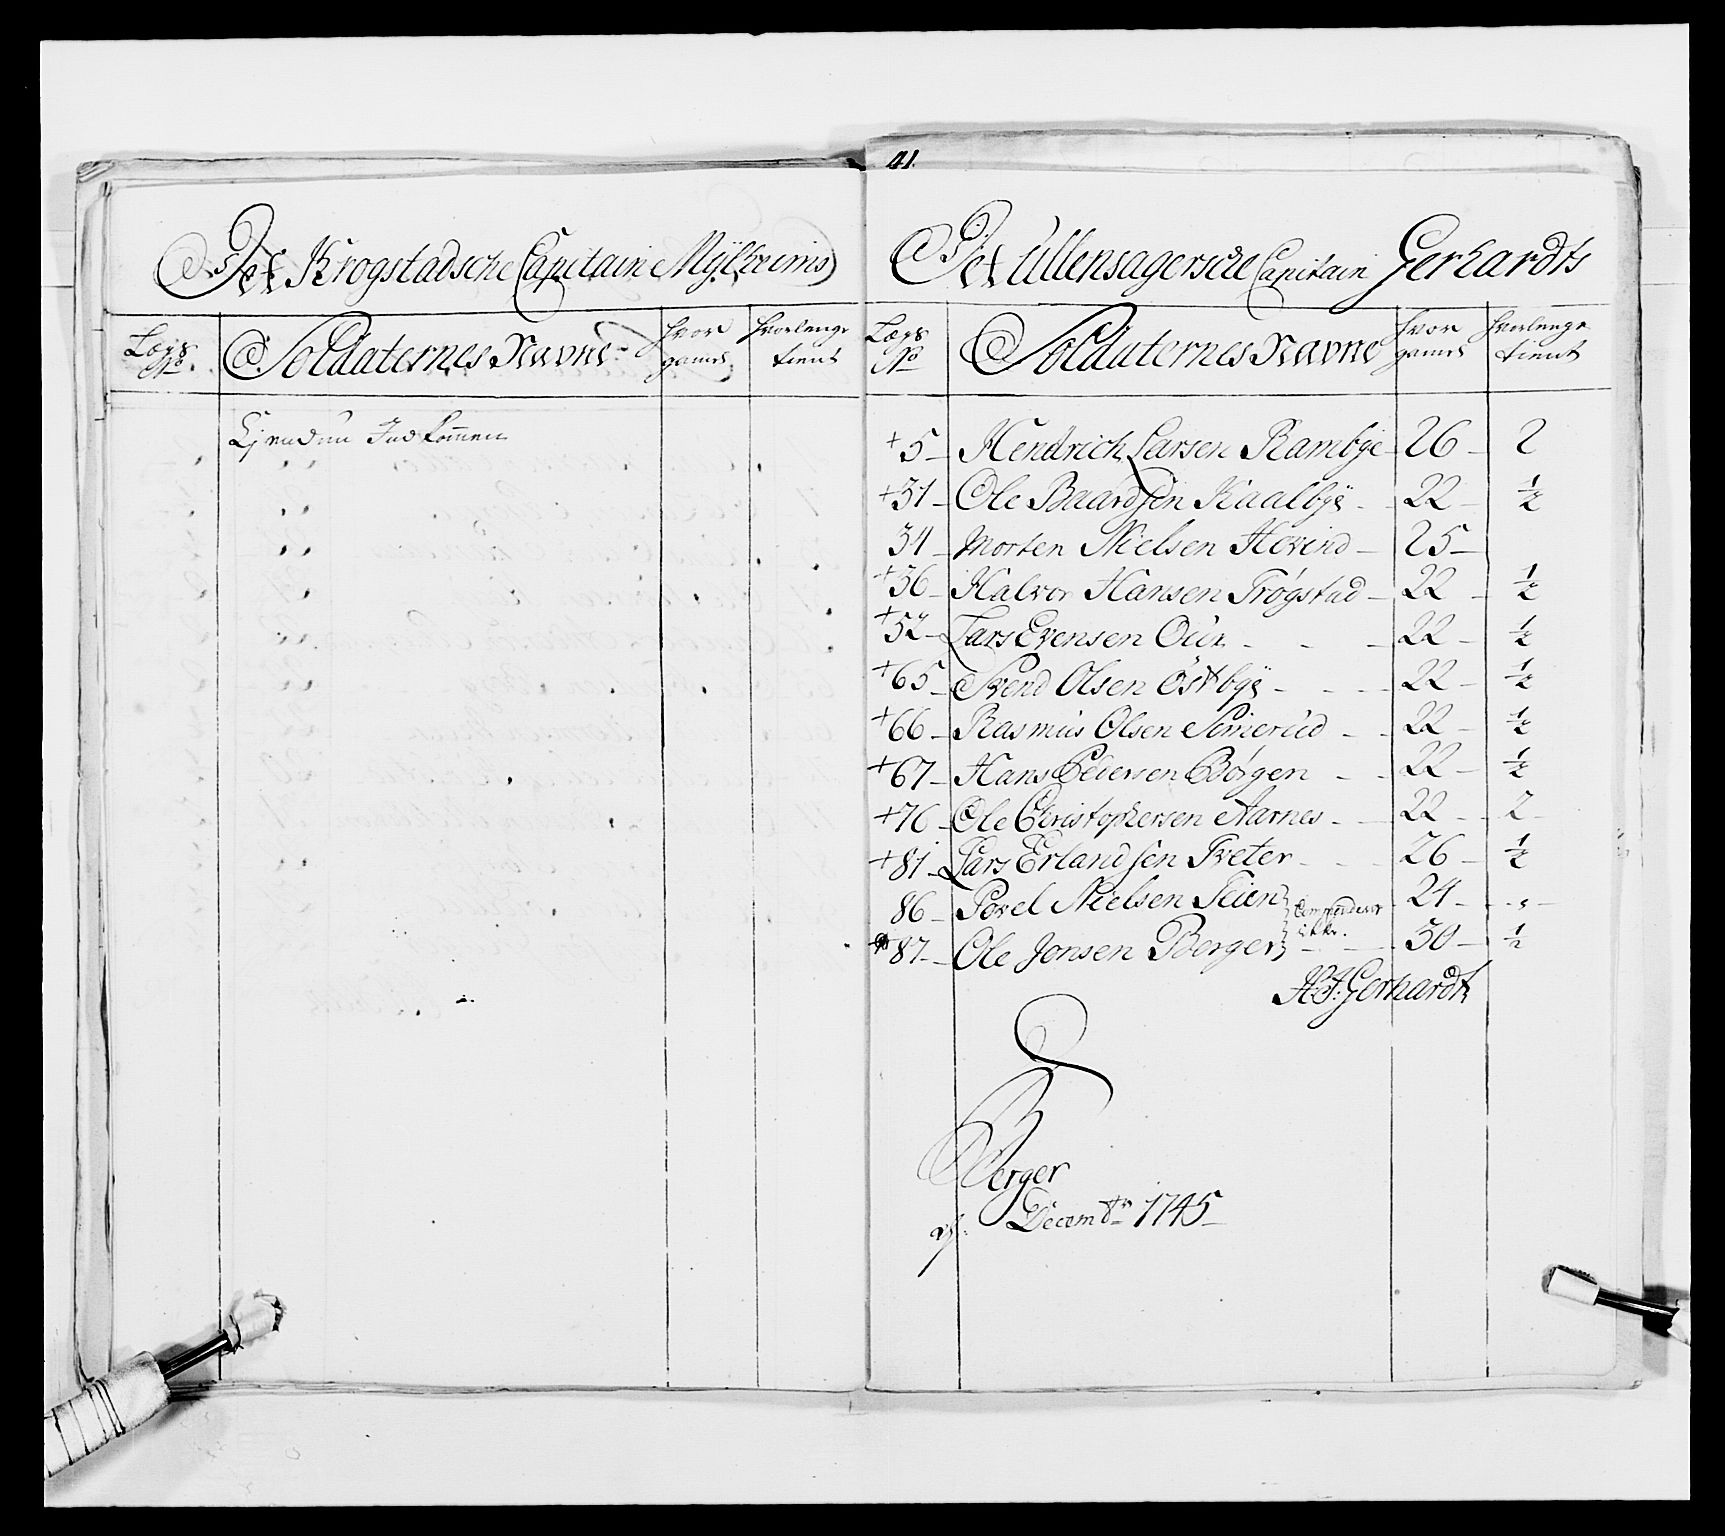 Det Krogstadsche Capitain Mÿlheims
Lægs No. Soldaternes Navne hvor gamel hvorlenge tient
Ejendnu Indkommen
41.
Det Ullensagersche Capitain Gerhardts
Lægs No Soldaternes Navne hvor gamel hvorlenge tient
+ 5 Hendrich Larsen Rambÿe 26 2
+ 31 Ole Baardsen Kaalbÿe 22 1/2
34 Morten Nielsen Hovind 25
+ 36 Halvor Hansen Trøgstad 22 1/2
+ 52 Lars Evensen 22 1/2
+ 65 Svend Olsen Østbÿe 22 1/2
+ 66 Rasmus Olsen Simerud 22 1/2
+ 67 Hans Pedersen Børgen 22 1/2
+ 76 Ole Christophersen Aarnes 22 2
+ 81 Lars Erlandsen Tveter 26 1/2
86 Povel Nielsen 24
87 Ole Jonsen Berger 30 1/2
ikke.
Gerhardt
Berger
Decembr 1745